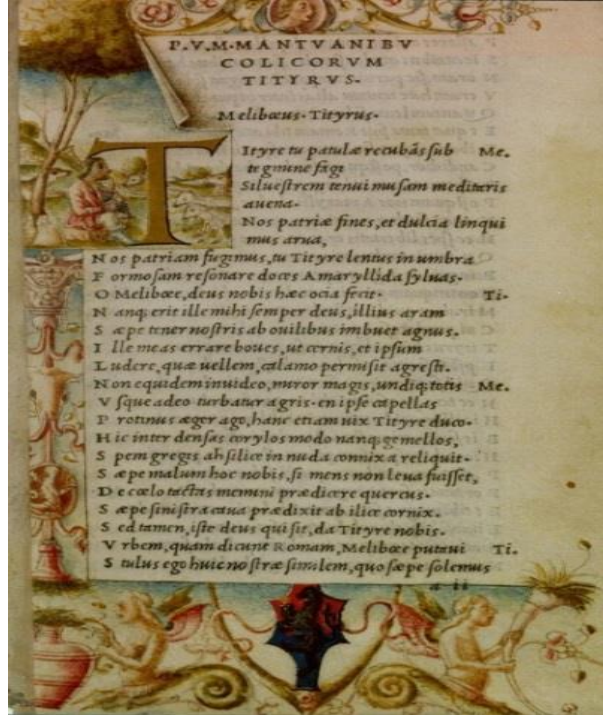 P.V.M.MANTVANI BV
COLICORVM
TITYRVS.
Melibœus. Tityrus.
TItyre tu patulæ recubãs sub Me.
tegmine fagi
Siluestrem tenui musam meditaris
auena.
Nos patriæ fines, et dulcia linqui
mus arua,
Nos patriam fugimus, tu Tityre lentus in umbra
Formosam resonare doces Amaryllida syluas.
O Melibœe, deus nobis hæc ocia fecit. Ti.
Nanq; erit ille mihi semper deus, illius aram
Sæpe tener nostris ab ouilibus imbuet agnus.
Ille meas errare boues, ut cernis, et ipsum
Ludere, quæ uellem, calamo permisit agresti.
Non equidem inuideo, miror magis, undiq; totis Me.
Vsque adeo turbatur agris. en ipse capellas
Protinus æger ago, hanc etiam uix Tityre duco.
Hic inter densas corylos modo nanq; gemellos,
Spem gregis ah silice in nuda connixa reliquit.
Sæpe malum hoc nobis, si mens non leua fuisset,
De cœlo tactas memini prædicere quercus.
Sæpe sinistra caua prædixit ab ilice cornix.
Sed tamen, iste deus qui sit, da Tityre nobis.
Vrbem, quam dicunt Romam, Melibœe putaui Ti.
Stultus ego huic nostræ similem, quo sæpe solemus
a ii